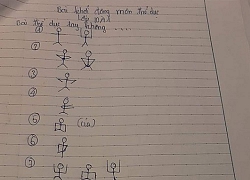 Bài khởi động môn thể dục
Lớp
Bài thể dục tay không ....
①
②
③
④
⑤
⑥
⑦